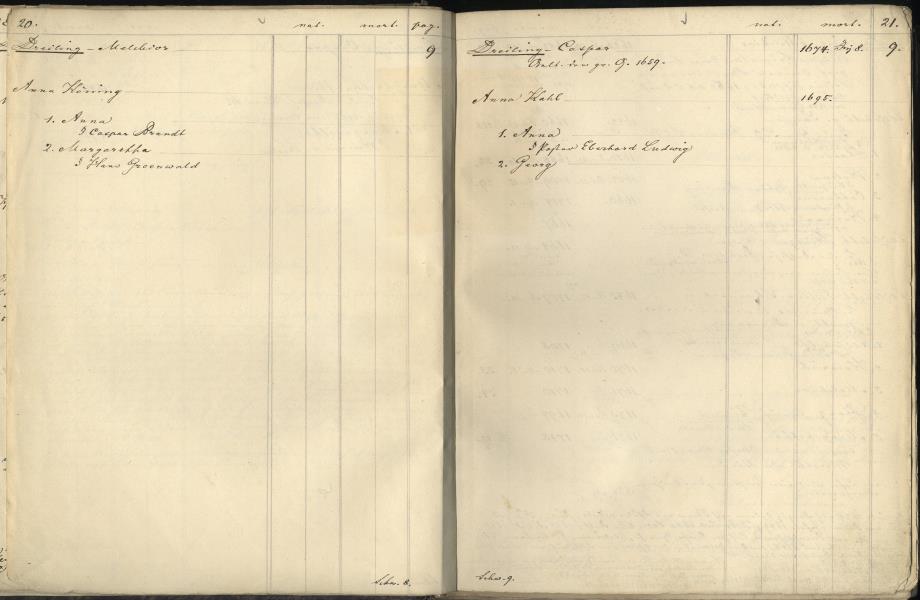 20. nat. mort. pag.
Dreiling - Melchior 9
Anna Höning
1. Anna
Caspar Brandt
2. Margaretha
Hans Groenwald
nat. mort. 21.
Dreiling - Caspar 1674. 8. 9.
Aelt. den gr. G. 1659.
Anna Kahl 1695.
1. Anna
Pastor Eberhard Ludwig
2. Georg